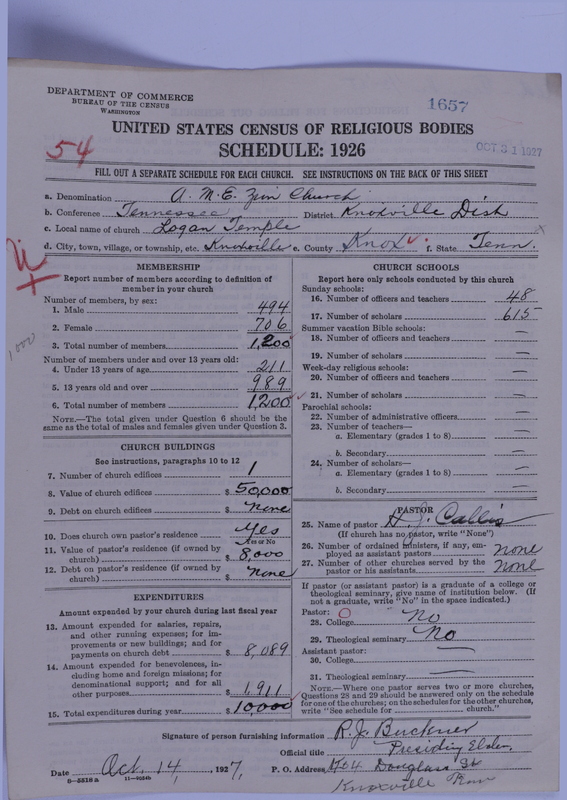 DEPARTMENT OF COMMERCE
BUREAU OF THE CENSUS
WASHINGTON
1657
UNITED STATES CENSUS OF RELIGIOUS BODIES
SCHEDULE: 1926
54
OCT 31 1927
FILL OUT A SEPARATE SCHEDULE FOR EACH CHURCH. SEE INSTRUCTIONS ON THE BACK OF THIS SHEET
a. Denomination A. M. E. Zion Church
b. Conference Tennessee District Knoxville Dist
c. Local name of church Logan Temple
d. City, town, village, or township, etc. Knoxville e. County Knox f. State Tenn.
MEMBERSHIP
Report number of members according to definition of
member in your church
Number of members, by sex:
1. Male 494
2. Female 706
3. Total number of members. 1,200
1000
Number of members under and over 13 years old:
4. Under 13 years of age 211
5. 13 years old and over 989
6. Total number of members 1,200
NOTE.—The total given under Question 6 should be the
same as the total of males and females given under Question 3.
CHURCH BUILDINGS
See instructions, paragraphs 10 to 12
7. Number of church edifices 1
8. Value of church edifices $ 50,000
9. Debt on church edifices $ none
10. Does church own pastor's residence yes
Yes or No
11. Value of pastor's residence (if owned by
church) $ 8,000
12. Debt on pastor's residence (if owned by
church) $ none
EXPENDITURES
Amount expended by your church during last fiscal year
13. Amount expended for salaries, repairs,
and other running expenses; for im-
provements or new buildings; and for
payments on church debt $ 8,089
14. Amount expended for benevolences, in-
cluding home and foreign missions; for
denominational support; and for all
other purposes $ 1,911
15. Total expenditures during year $ 10,000
CHURCH SCHOOLS
Report here only schools conducted by this church
Sunday schools:
16. Number of officers and teachers 48
17. Number of scholars 615
Summer vacation Bible schools:
18. Number of officers and teachers —
19. Number of scholars —
Week-day religious schools:
20. Number of officers and teachers —
21. Number of scholars —
Parochial schools:
22. Number of administrative officers —
23. Number of teachers—
a. Elementary (grades 1 to 8) —
b. Secondary —
24. Number of scholars—
a. Elementary (grades 1 to 8) —
b. Secondary —
PASTOR
25. Name of pastor H. J. Callis
(If church has no pastor, write "None")
26. Number of ordained ministers, if any, em-
ployed as assistant pastors none
27. Number of other churches served by the
pastor or his assistants none
If pastor (or assistant pastor) is a graduate of a college or
theological seminary, give name of institution below. (If
not a graduate, write "No" in the space indicated.)
Pastor:
28. College No
29. Theological seminary No
Assistant pastor:
30. College —
31. Theological seminary —
NOTE.—Where one pastor serves two or more churches,
Questions 28 and 29 should be answered only on the schedule
for one of the churches; on the schedules for the other churches,
write "See schedule for church."
Signature of person furnishing information R. J. Buckner
Official title Presiding Elder.
Date Oct. 14, 1927, P. O. Address 1704 Douglass St
Knoxville Tenn
8—5518 a